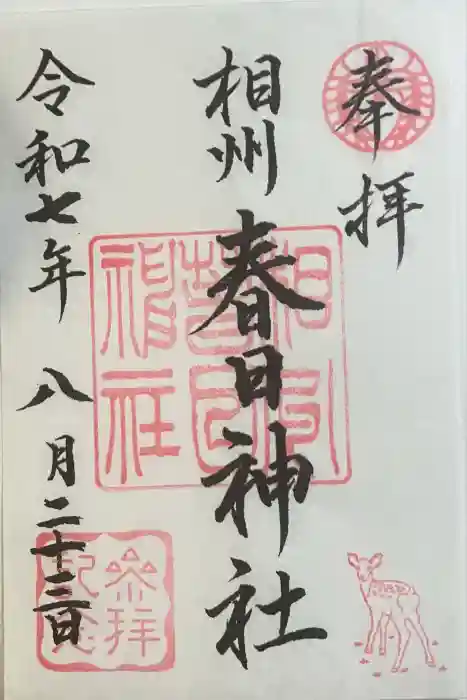 奉拝
相州 春日神社
令和七年 八月二十三日
相州春日神社
参拝記念